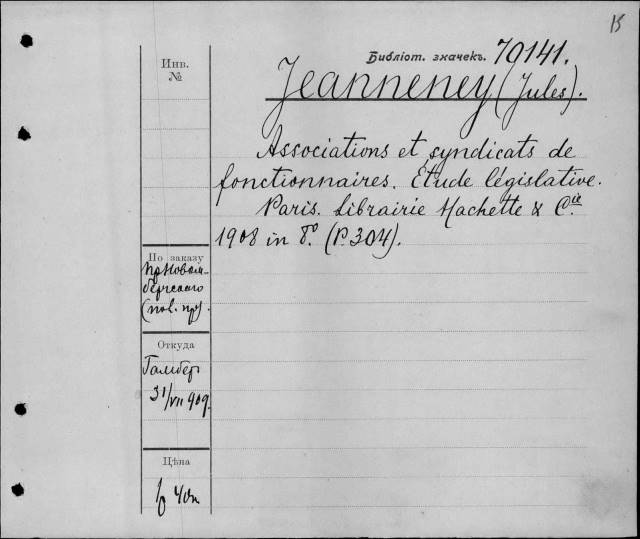 Инв.
№
Библіот. значекъ. 70141.
Jeanneney (Jules).
Associations et syndicats de
fonctionnaires. Étude législative.
Paris. Librairie Hachette & Cie
1908 in 8º. (P. 304).
По заказу
Откуда
31/VII 909.
Цѣна